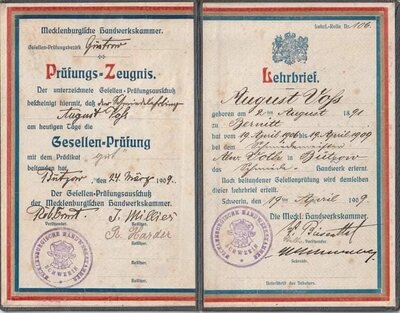 Mecklenburgische Handwerkskammer.
Gesellen-Prüfungsbezirk Güstrow
Prüfungs-Zeugnis.
Der unterzeichnete Gesellen-Prüfungsausschuß
bescheinigt hiermit, daß der Schmiedelehrling
August Voß
am heutigen Tage die
Gesellen-Prüfung
mit dem Prädikat „gut“
bestanden hat.
Bützow, den 24 März 1909.
Der Gesellen-Prüfungsausschuß
der Mecklenburgischen Handwerkskammer.
Vorsitzender.
Beisitzer.
R. Harder
Beisitzer.
MECKLENBURGISCHE HANDWERKSKAMMER
SCHWERIN
Lehrl.-Rolle Nr. 106.
Lehrbrief.
August Voß
geboren am 2ten August 1891
zu Bernitt
hat vom 19 April 1906 bis 19 April 1909
bei dem Schmiedemeister
in Bützow
das Schmiede- Handwerk erlernt.
Nach bestandener Gesellenprüfung wird demselben
dieser Lehrbrief erteilt.
Schwerin, 19ten April 1909.
Die Meckl. Handwerkskammer.
Vorsitzender.
MECKLENBURGISCHE HANDWERKSKAMMER
SCHWERIN
Unterschrift des Inhabers.